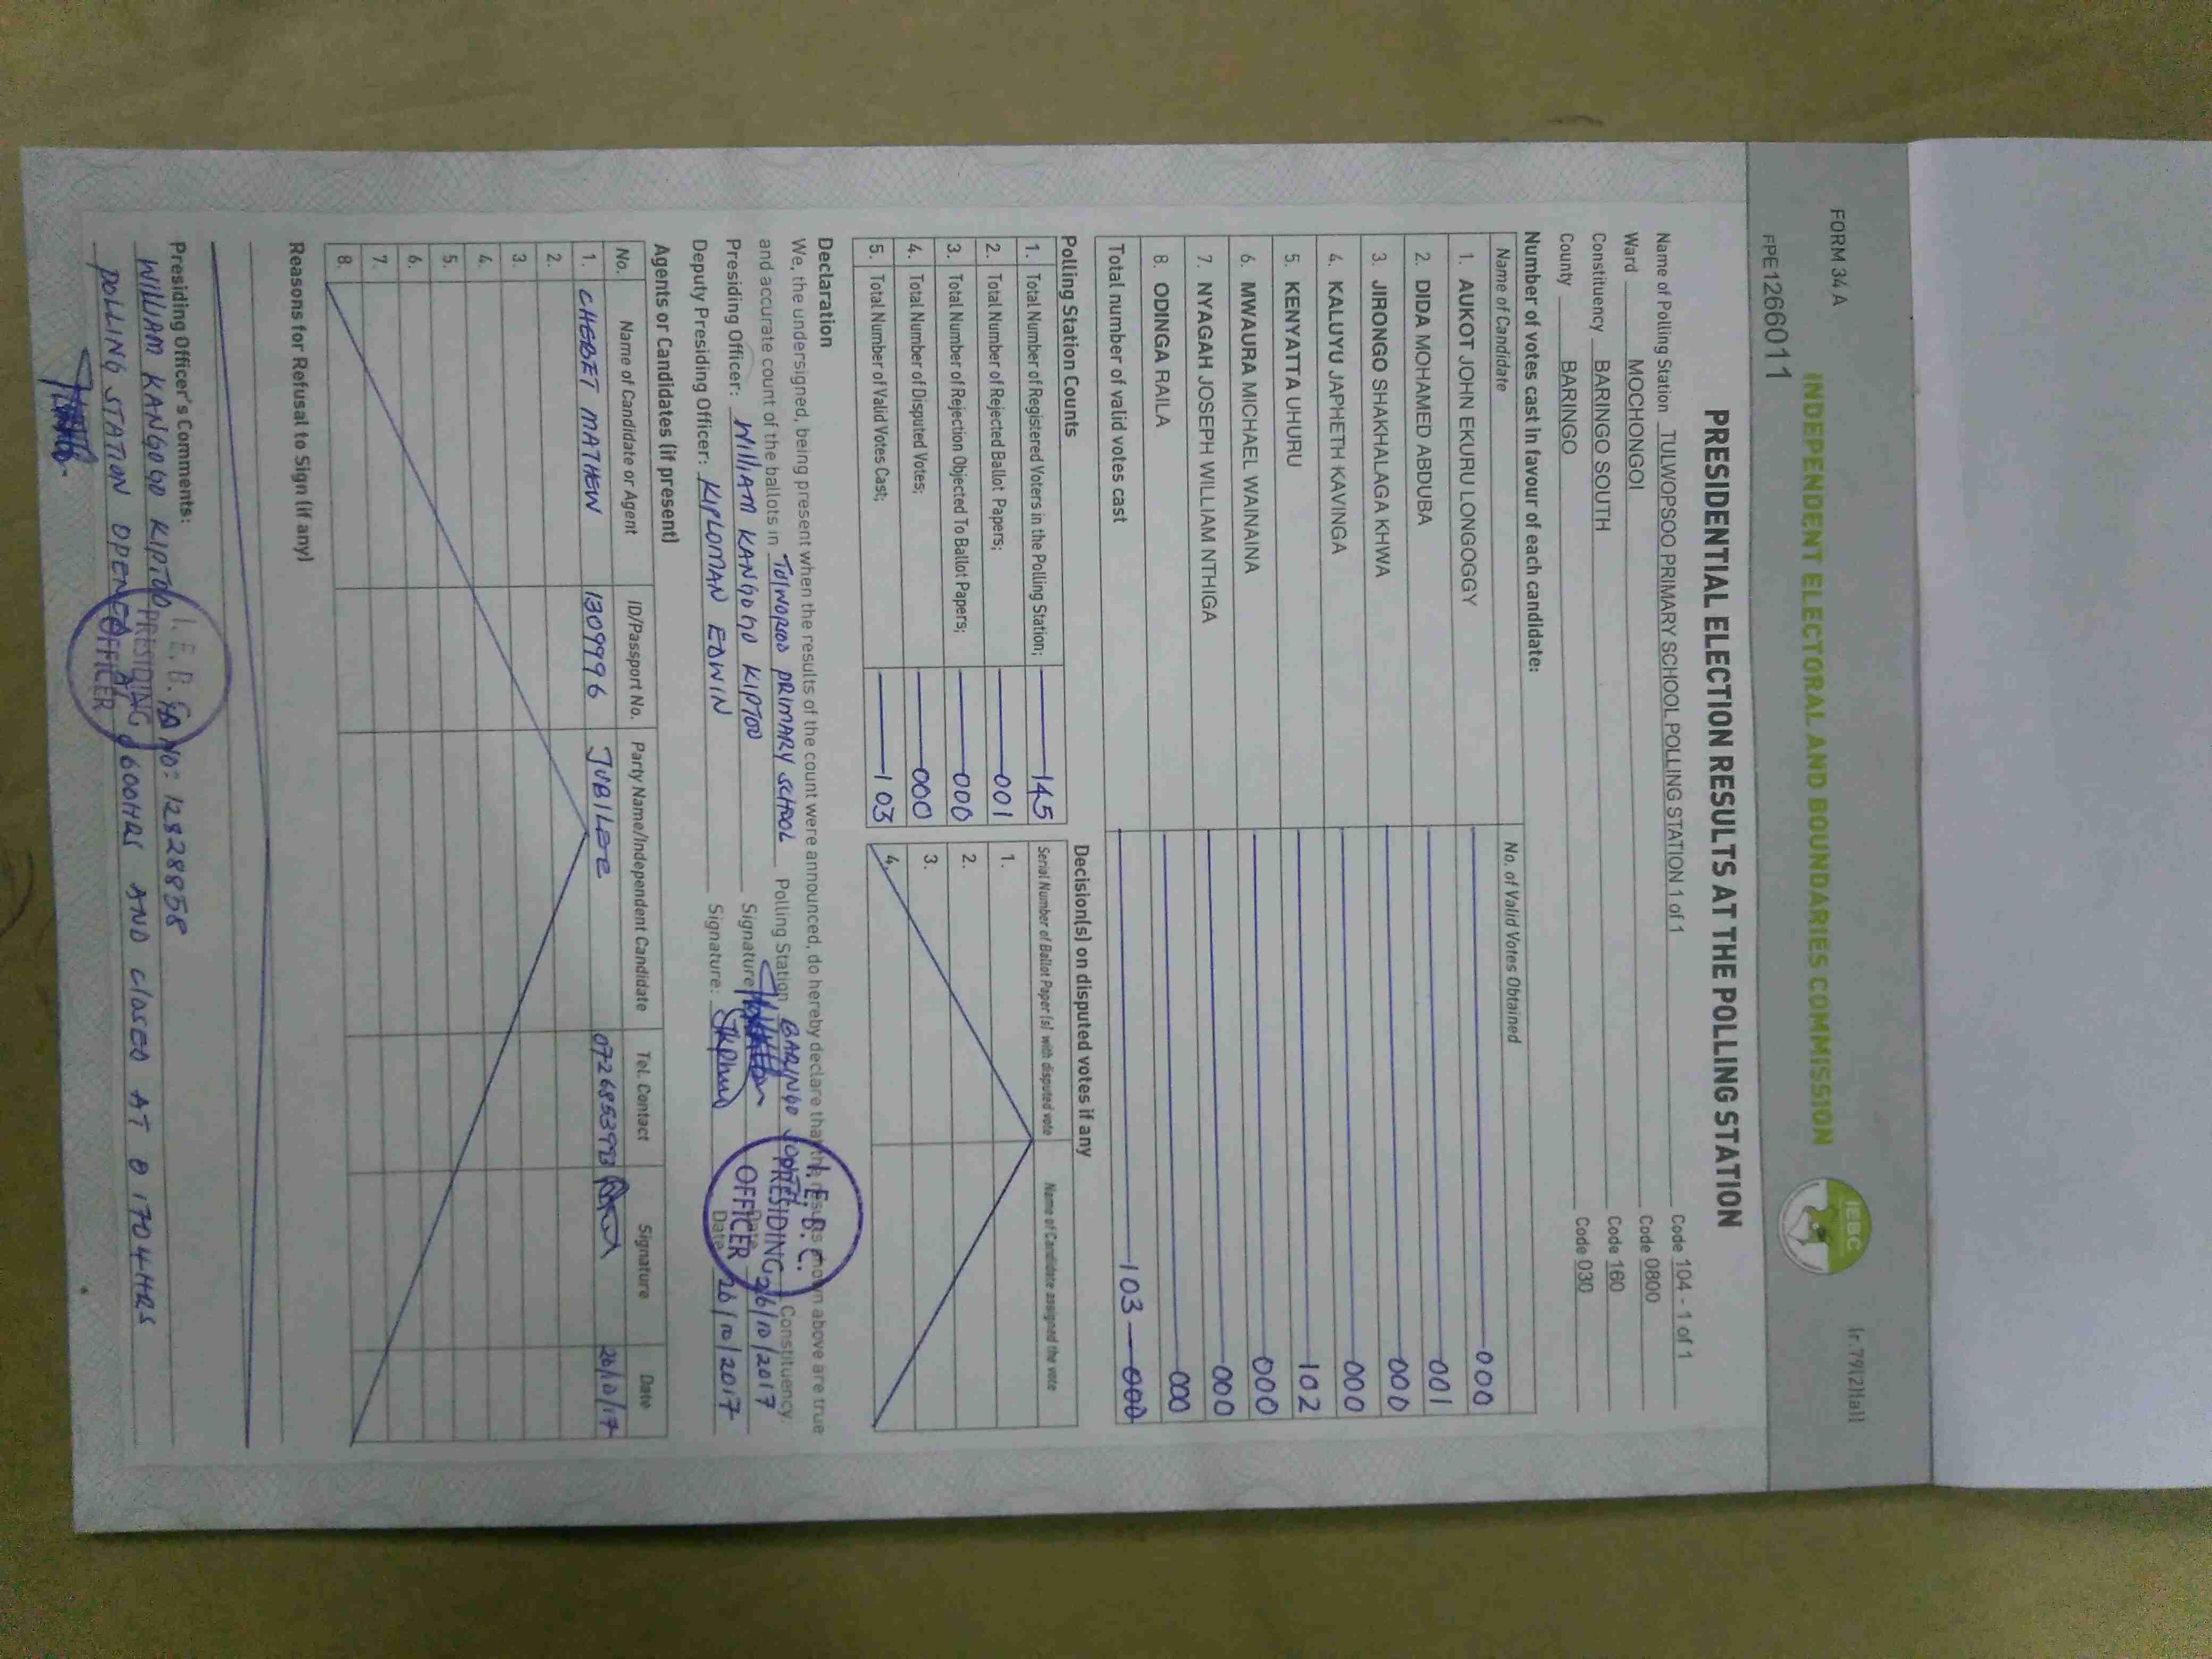 FORM 34 A
INDEPENDENT ELECTORAL AND BOUNDARIES COMMISSION
IEBC
PPE1266011
PRESIDENTIAL ELECTION RESULTS AT THE POLLING STATION
Name of Polling Station TULWOPSOO PRIMARY SCHOOL POLLING STATION 1 of 1 Code 104 - 1 of 1
Ward MOCHONGOI Code 0800
Constituency BARINGO SOUTH Code 160
County BARINGO Code 030
Number of votes cast in favour of each candidate:
Name of Candidate No. of Valid Votes Obtained
1. AUKOT JOHN EKURU LONGOGGY 000
2. DIDA MOHAMED ABDUBA 001
3. JIRONGO SHAKHALAGA KHWA 000
4. KALUYU JAPHETH KAVINGA 000
5. KENYATTA UHURU 102
6. MWAURA MICHAEL WAINAINA 000
7. NYAGAH JOSEPH WILLIAM NTHIGA 000
8. ODINGA RAILA 000
Total number of valid votes cast 103 000
Polling Station Counts
1. Total Number of Registered Voters in the Polling Station; 145
2. Total Number of Rejected Ballot Papers; 001
3. Total Number of Rejection Objected To Ballot Papers; 000
4. Total Number of Disputed Votes; 000
5. Total Number of Valid Votes Cast; 103
Decision(s) on disputed votes if any
Serial Number of Ballot Paper (s) with disputed vote Name of Candidate assigned the vote
1.
2.
3.
4.
Declaration
We, the undersigned, being present when the results of the count were announced, do hereby declare that the results shown above are true
and accurate count of the ballots in TULWOPSOO PRIMARY SCHOOL Polling Station BARINGO SOUTH Constituency.
Presiding Officer: WILLIAM KANGOGO KIPTOO Signature Date 26/10/2017
Deputy Presiding Officer: KIPLOMAN EDWIN Signature: Date 26/10/2017
I. E. B. C.
PRESIDING
OFFICER
Agents or Candidates (if present)
No. Name of Candidate or Agent ID/Passport No. Party Name/Independent Candidate Tel. Contact Signature Date
1. CHEBET MATHEW 1309996 JUBILEE 0726853993 26/10/17
2.
3.
4.
5.
6.
7.
8.
Reasons for Refusal to Sign (if any)
Presiding Officer's Comments:
WILLIAM KANGOGO KIPTOO ID NO: 12828858
POLLING STATION OPENED AT 0600HRS AND CLOSED AT 1704HRS
I. E. B. C.
PRESIDING
OFFICER